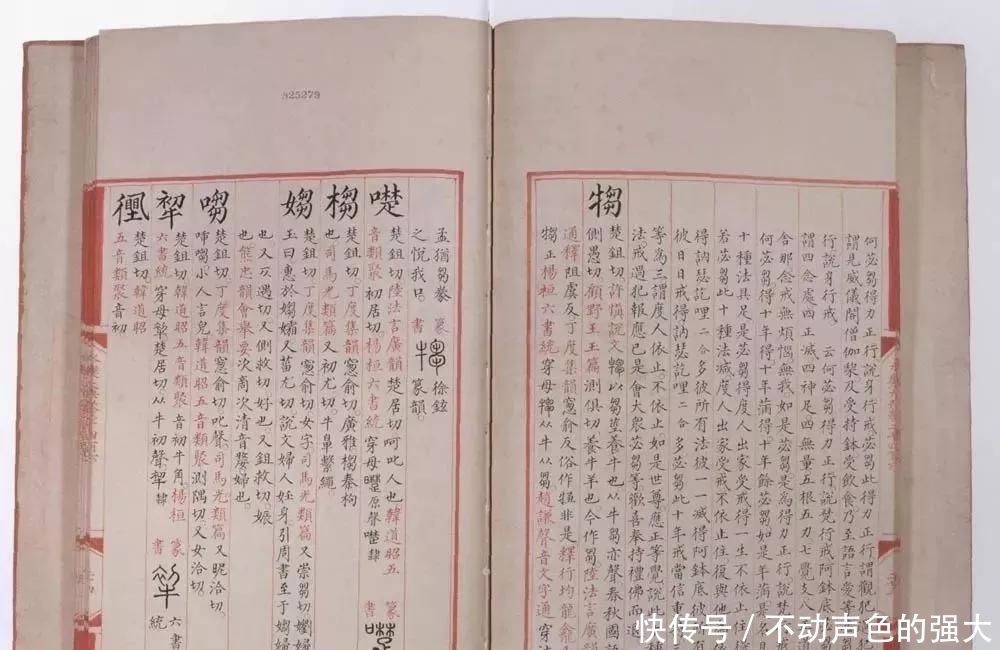 825279
何苾芻得力正行說身行戒苾芻此得力正行謂觀犯
謂是威儀開僧伽梨及受持鉢受飲食乃至語言愛等
行說身行戒 云何苾芻得力正行說梵行戒阿鉢底
謂四念處四正減四神足四無量五根五力七覺支八
舍那念戒無煩惱無我如是苾芻是為得力正行說梵
何苾芻得十年得十年蒲得十年餘苾芻如是年蒲是
十種法具足是苾芻得度人出家受戒得一生不依止住
若苾芻此十種法減度人出家受戒不依止住復與他
得訥瑟訖哩二合多彼所有法彼一一減得阿鉢底彼
彼日日戒得訥瑟訖哩二合多苾芻此十年戒當信重
等為三謂度人依止不依止如是世尊應正等覺說此
法戒過犯報應已是會大眾苾芻等歡喜奉持禮佛而退
犓
楚鉏切許慎說文犓以芻莖養牛也从牛芻亦聲春秋國
側愚切顧野王玉篇測俱切養牛羊也今作芻陸法言廣韻
通釋阻虞反丁度集韻窻俞反俗作𤚲非是釋行均龍龕
犓正楊桓六書統穿母犓从牛从芻趙謙聲音文字通穿
孟猶芻豢 篆書 徐鉉
之悅我口 篆韻
㗵
楚鉏切陸法言廣韻楚居切呵叱人也韓道昭五
音類聚初居切楊桓六書統穿母㗵原聲㗵隸 篆書
㮲
楚鉏切丁度集韻窻俞切廣雅㮲秦拘
也司馬光類篇又初尤切牛鼻繫繩
媰
楚鉏切丁度集韻窻俞切女字司馬光類篇又崇芻切孎媰
玉曰惠於媰孀又菑尤切說文婦人妊身引周書至于媰婦
也又仄遇切又側救切好也又鉏救切娠
也熊忠韻會舉要次商次清音嫠婦也
㗙
楚鉏切丁度集韻窻俞切叱聲司馬光類篇又昵洽切
㗙小人言皃韓道昭五音類聚測隅切又女洽切
犂
楚鉏切韓道昭五音類聚音初牛角楊桓 篆書 六書統
六書統穿母犂楚居切从牛初聲犂隸
楚鉏切韓道昭
五音類聚音初
快传号 / 不动声色的强大